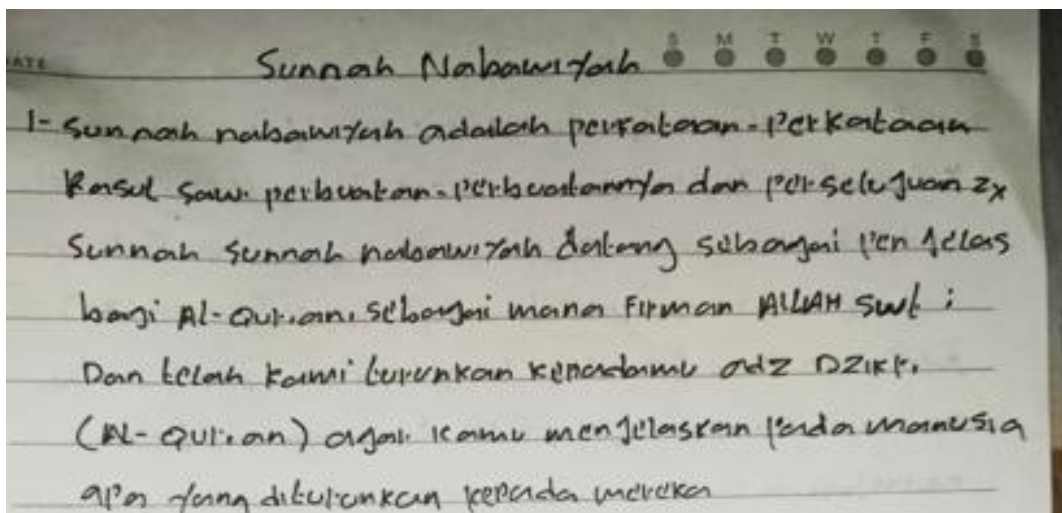 DATE
Sunnah Nabawiyah S M T W T F S
1- Sunnah nabawiyah adalah perkataan-Perkataan
Rasul Saw. perbuatan-perbuatannya dan persetujuan2x
Sunnah Sunnah nabawiyah datang sebagai Penjelas
bagi Al-Qur'an. sebagai mana Firman ALLAH Swt :
Dan telah Kami turunkan kepadamu adz DZIKR.
(AL-Qur'an) agar kamu menjelaskan Pada manusia
apa yang diturunkan kepada mereka